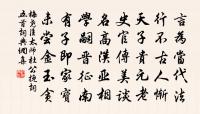 言為當代法
行不古人慚
天子貴元老
史官傳美談
名高漢丞相
學嗣晉征南
有子即家寶
未嘗金玉貪
梅堯臣太師杜公挽詞
五首詞典網喜